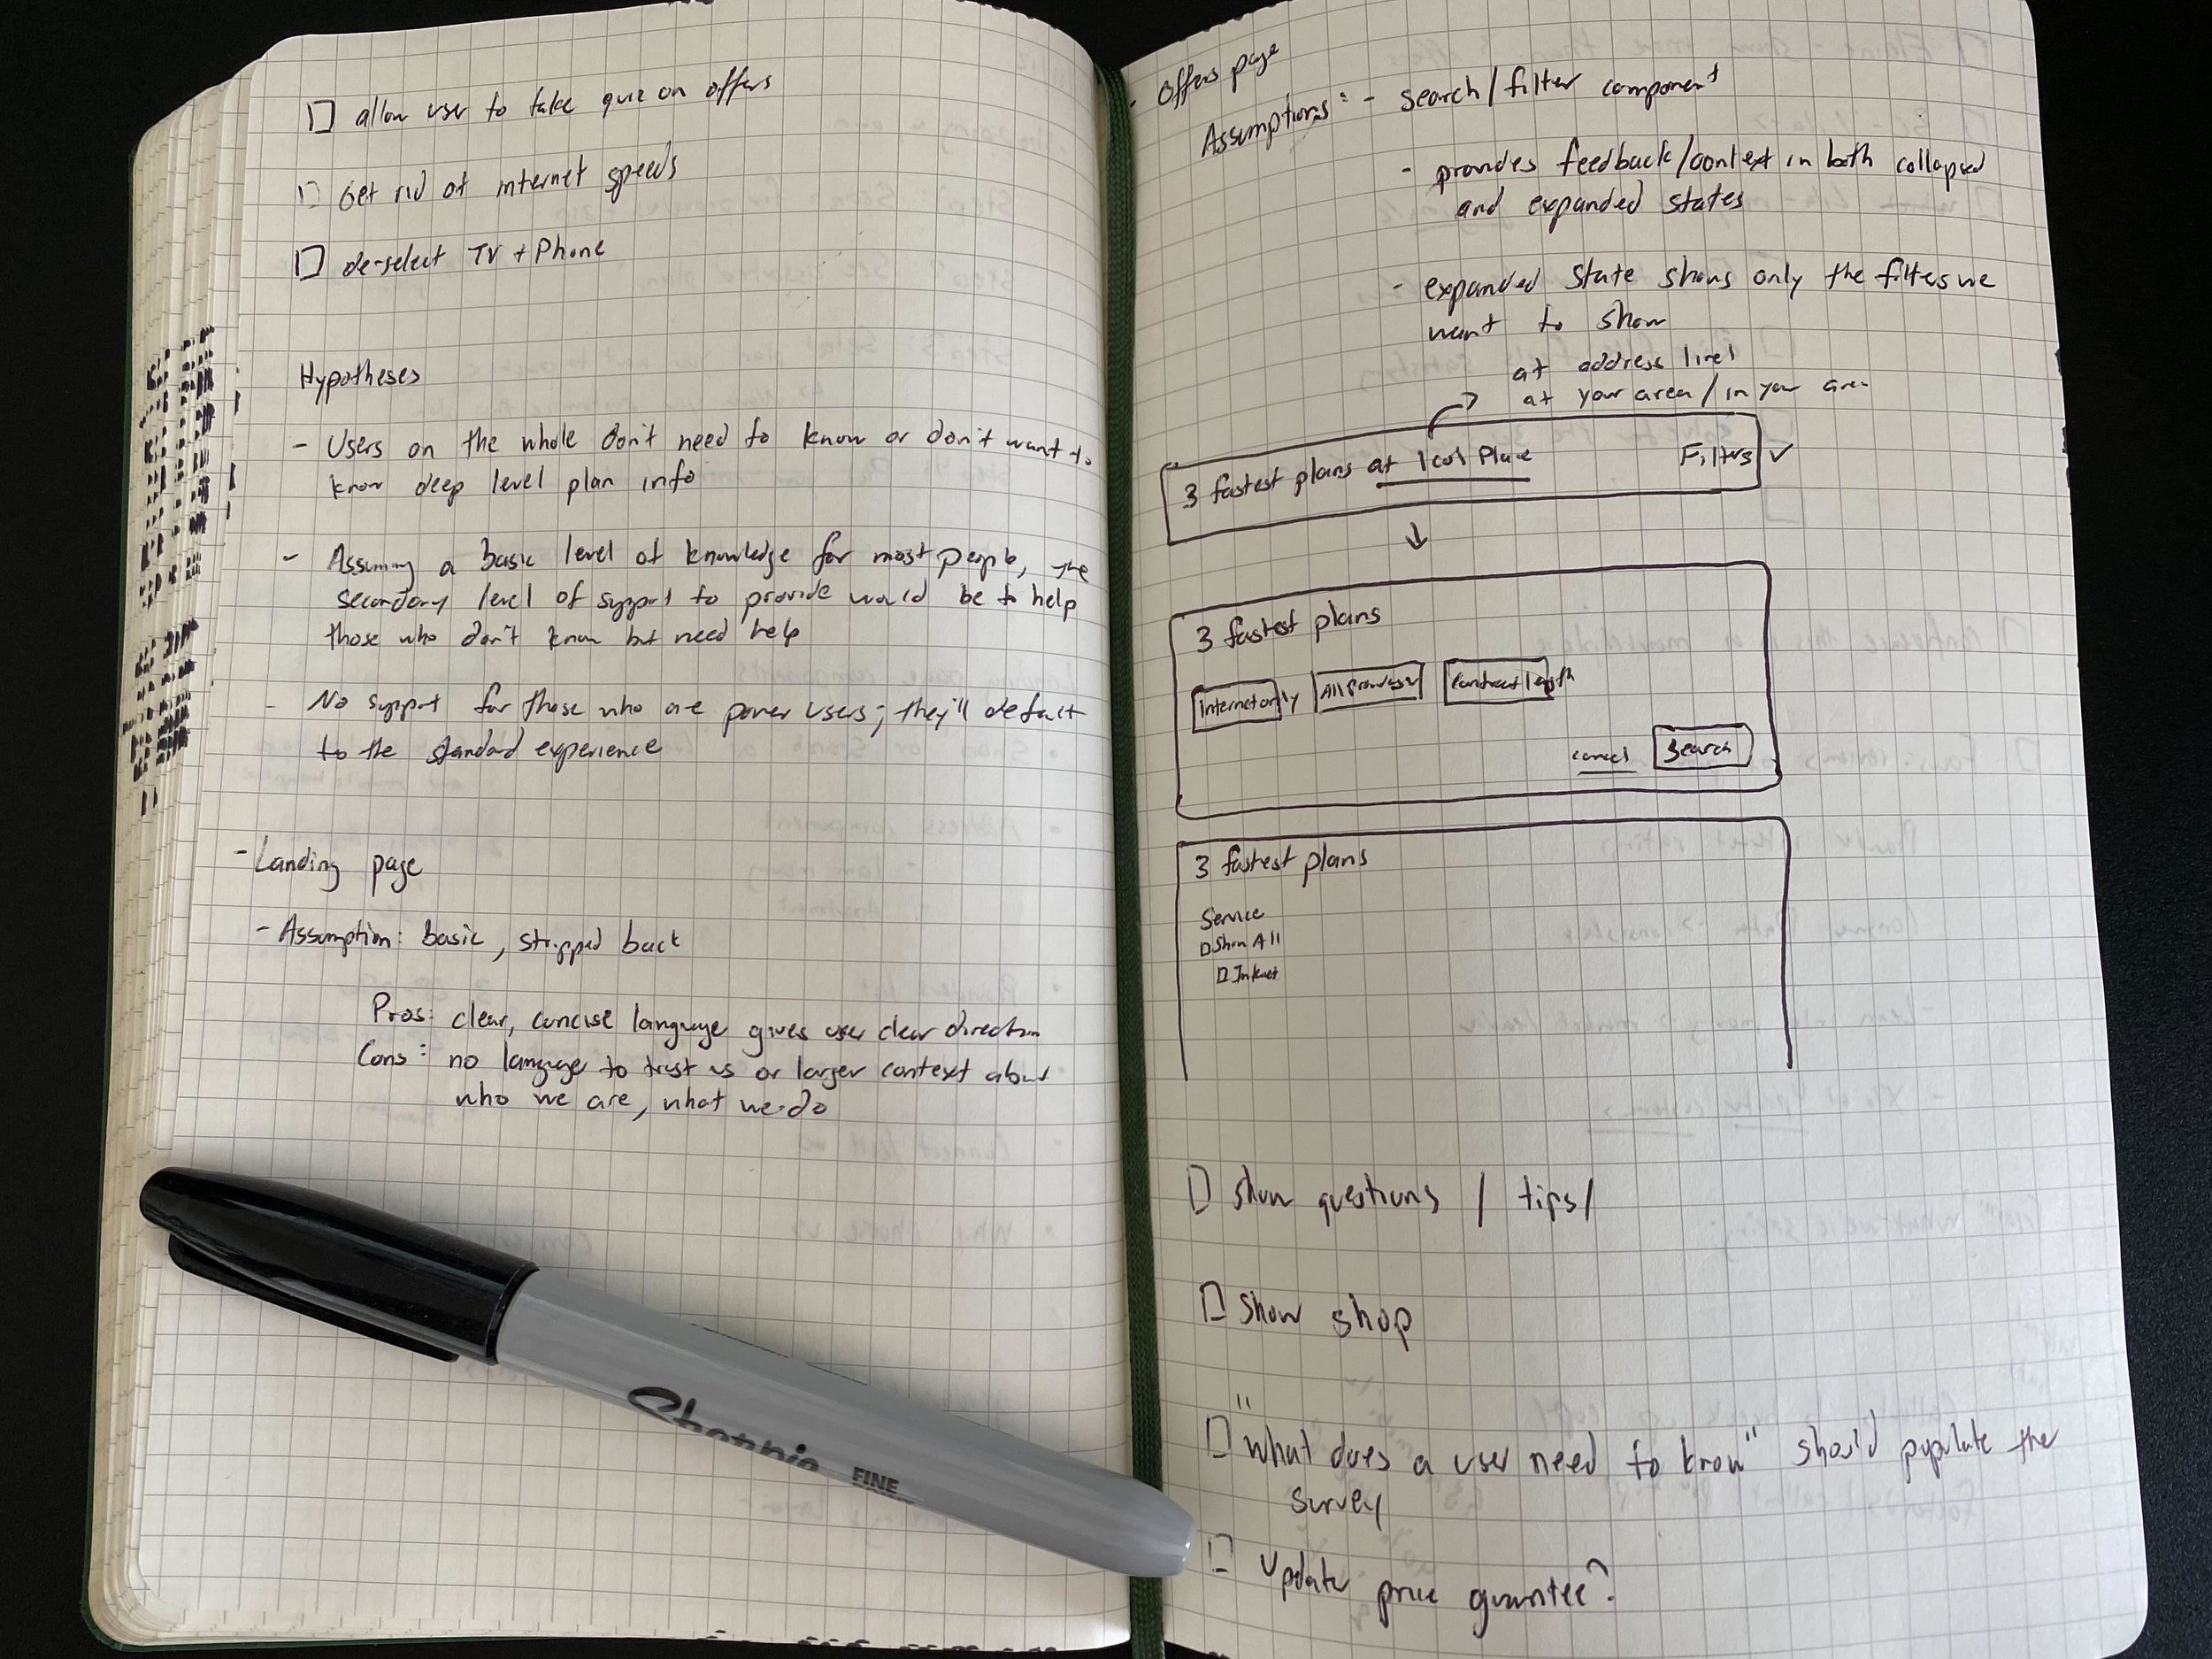 allow user to take quiz on offers
Get rid of internet speeds
de-select TV + Phone
Hypotheses
- Users on the whole don't need to know or don't want to
know deep level plan info
- Assuming a basic level of knowledge for most people, the
secondary level of support to provide would be to help
those who don't know but need help
- No support for those who are power users; they'll default
to the standard experience
- Landing page
- Assumption: basic, stripped back
Pros: clear, concise language gives user clear direction
Cons: no language to trust us or larger context about
who we are, what we do
Sharpie FINE
- Offers page
Assumptions: - search/filter component
- provides feedback/context in both collapsed
and expanded states
- expanded state shows only the filters we
want to show
at address line 1
at your area / in your area
3 fastest plans at Place Filters
3 fastest plans
Internet only All providers Contract length
cancel Search
3 fastest plans
Service
Show All
Internet
show questions / tips/
show shop
"what does a user need to know" should populate the
survey
Update price guarntee?